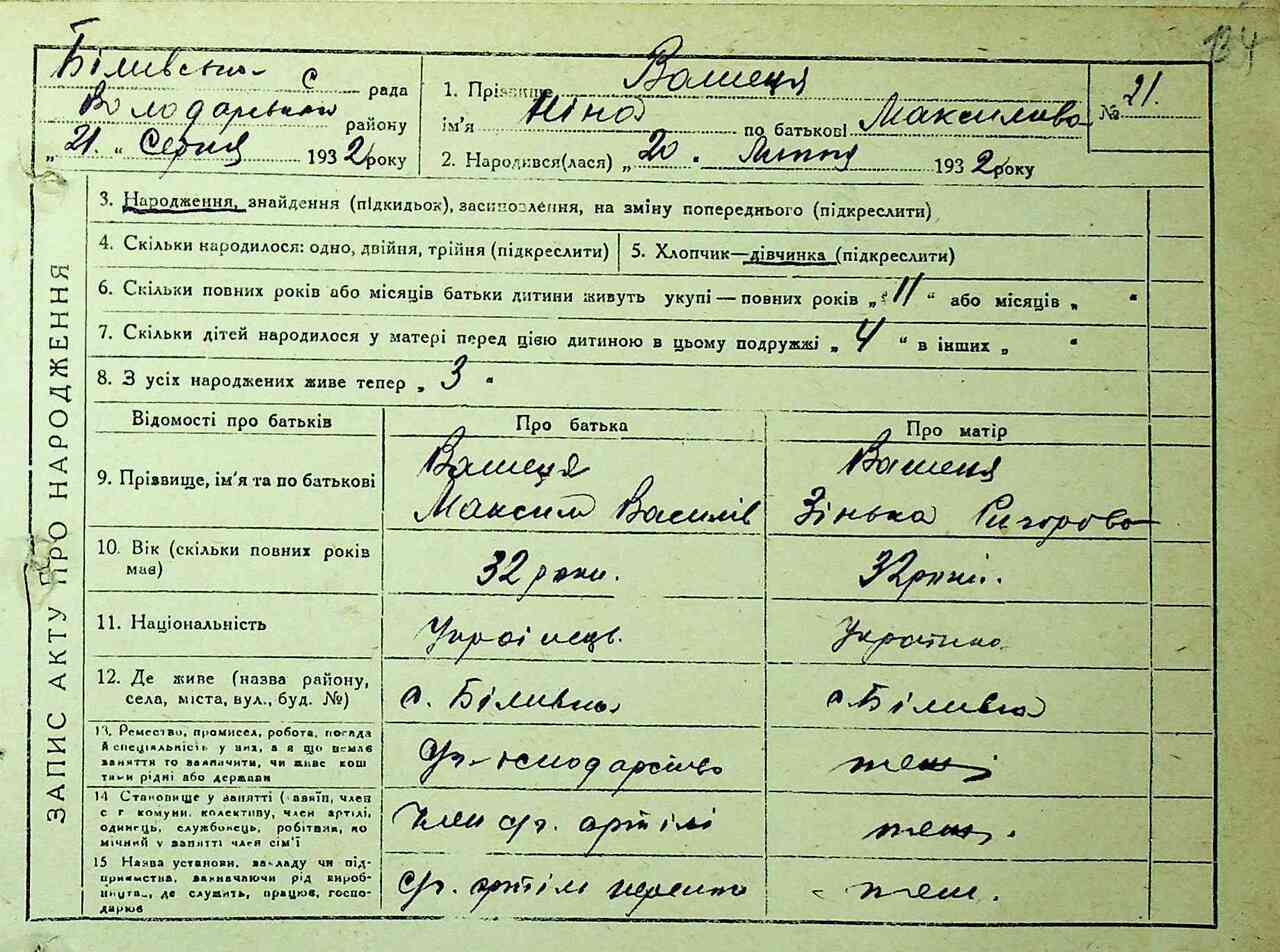 134
Біливська с рада
Володарського району
„ 21. “ Серпня 1932 року
1. Прізвище Вашеця
ім'я Ніна по батькові Максимова
2. Народився(лася) „ 20 “ Лютого 1932 року
№ 21.
ЗАПИС АКТУ ПРО НАРОДЖЕННЯ
3. Народження, знайдення (підкидьок), засиновлення, на зміну попереднього (підкреслити)
4. Скільки народилося: одно, двійня, трійня (підкреслити)
5. Хлопчик—дівчинка (підкреслити)
6. Скільки повних років або місяців батьки дитини живуть укупі — повних років „ 11 “ або місяців „ “
7. Скільки дітей народилося у матері перед цією дитиною в цьому подружжі „ 4 “ в інших „ “
8. З усіх народжених живе тепер „ 3 “
Відомості про батьків
Про батька
Про матір
9. Прізвище, ім'я та по батькові
Вашеця
Максим Василів
Вашеця
Зінька Григорова
10. Вік (скільки повних років
має)
32 роки.
32 роки.
11. Національність
Українець.
Українка
12. Де живе (назва району,
села, міста, вул., буд. №)
с. Біливка
с. Біливка
13. Ремество, промисел, робота, посада
й спеціальність у них, а якщо немає
заняття то зазначити, чи живе кош
тами рідні або держави
С/г. господарство
теж
14 Становище у занятті (хазяїн, член
с г комуни, колективу, член артілі,
одинець, службовець, робітник, по
мічний у занятті член сім'ї
Член с/г. артілі
теж.
15 Назва установи, закладу чи під-
приємства, зазначаючи рід вироб-
ництва, де служить, працює, госпо-
дарює
С/г. артіль
теж.